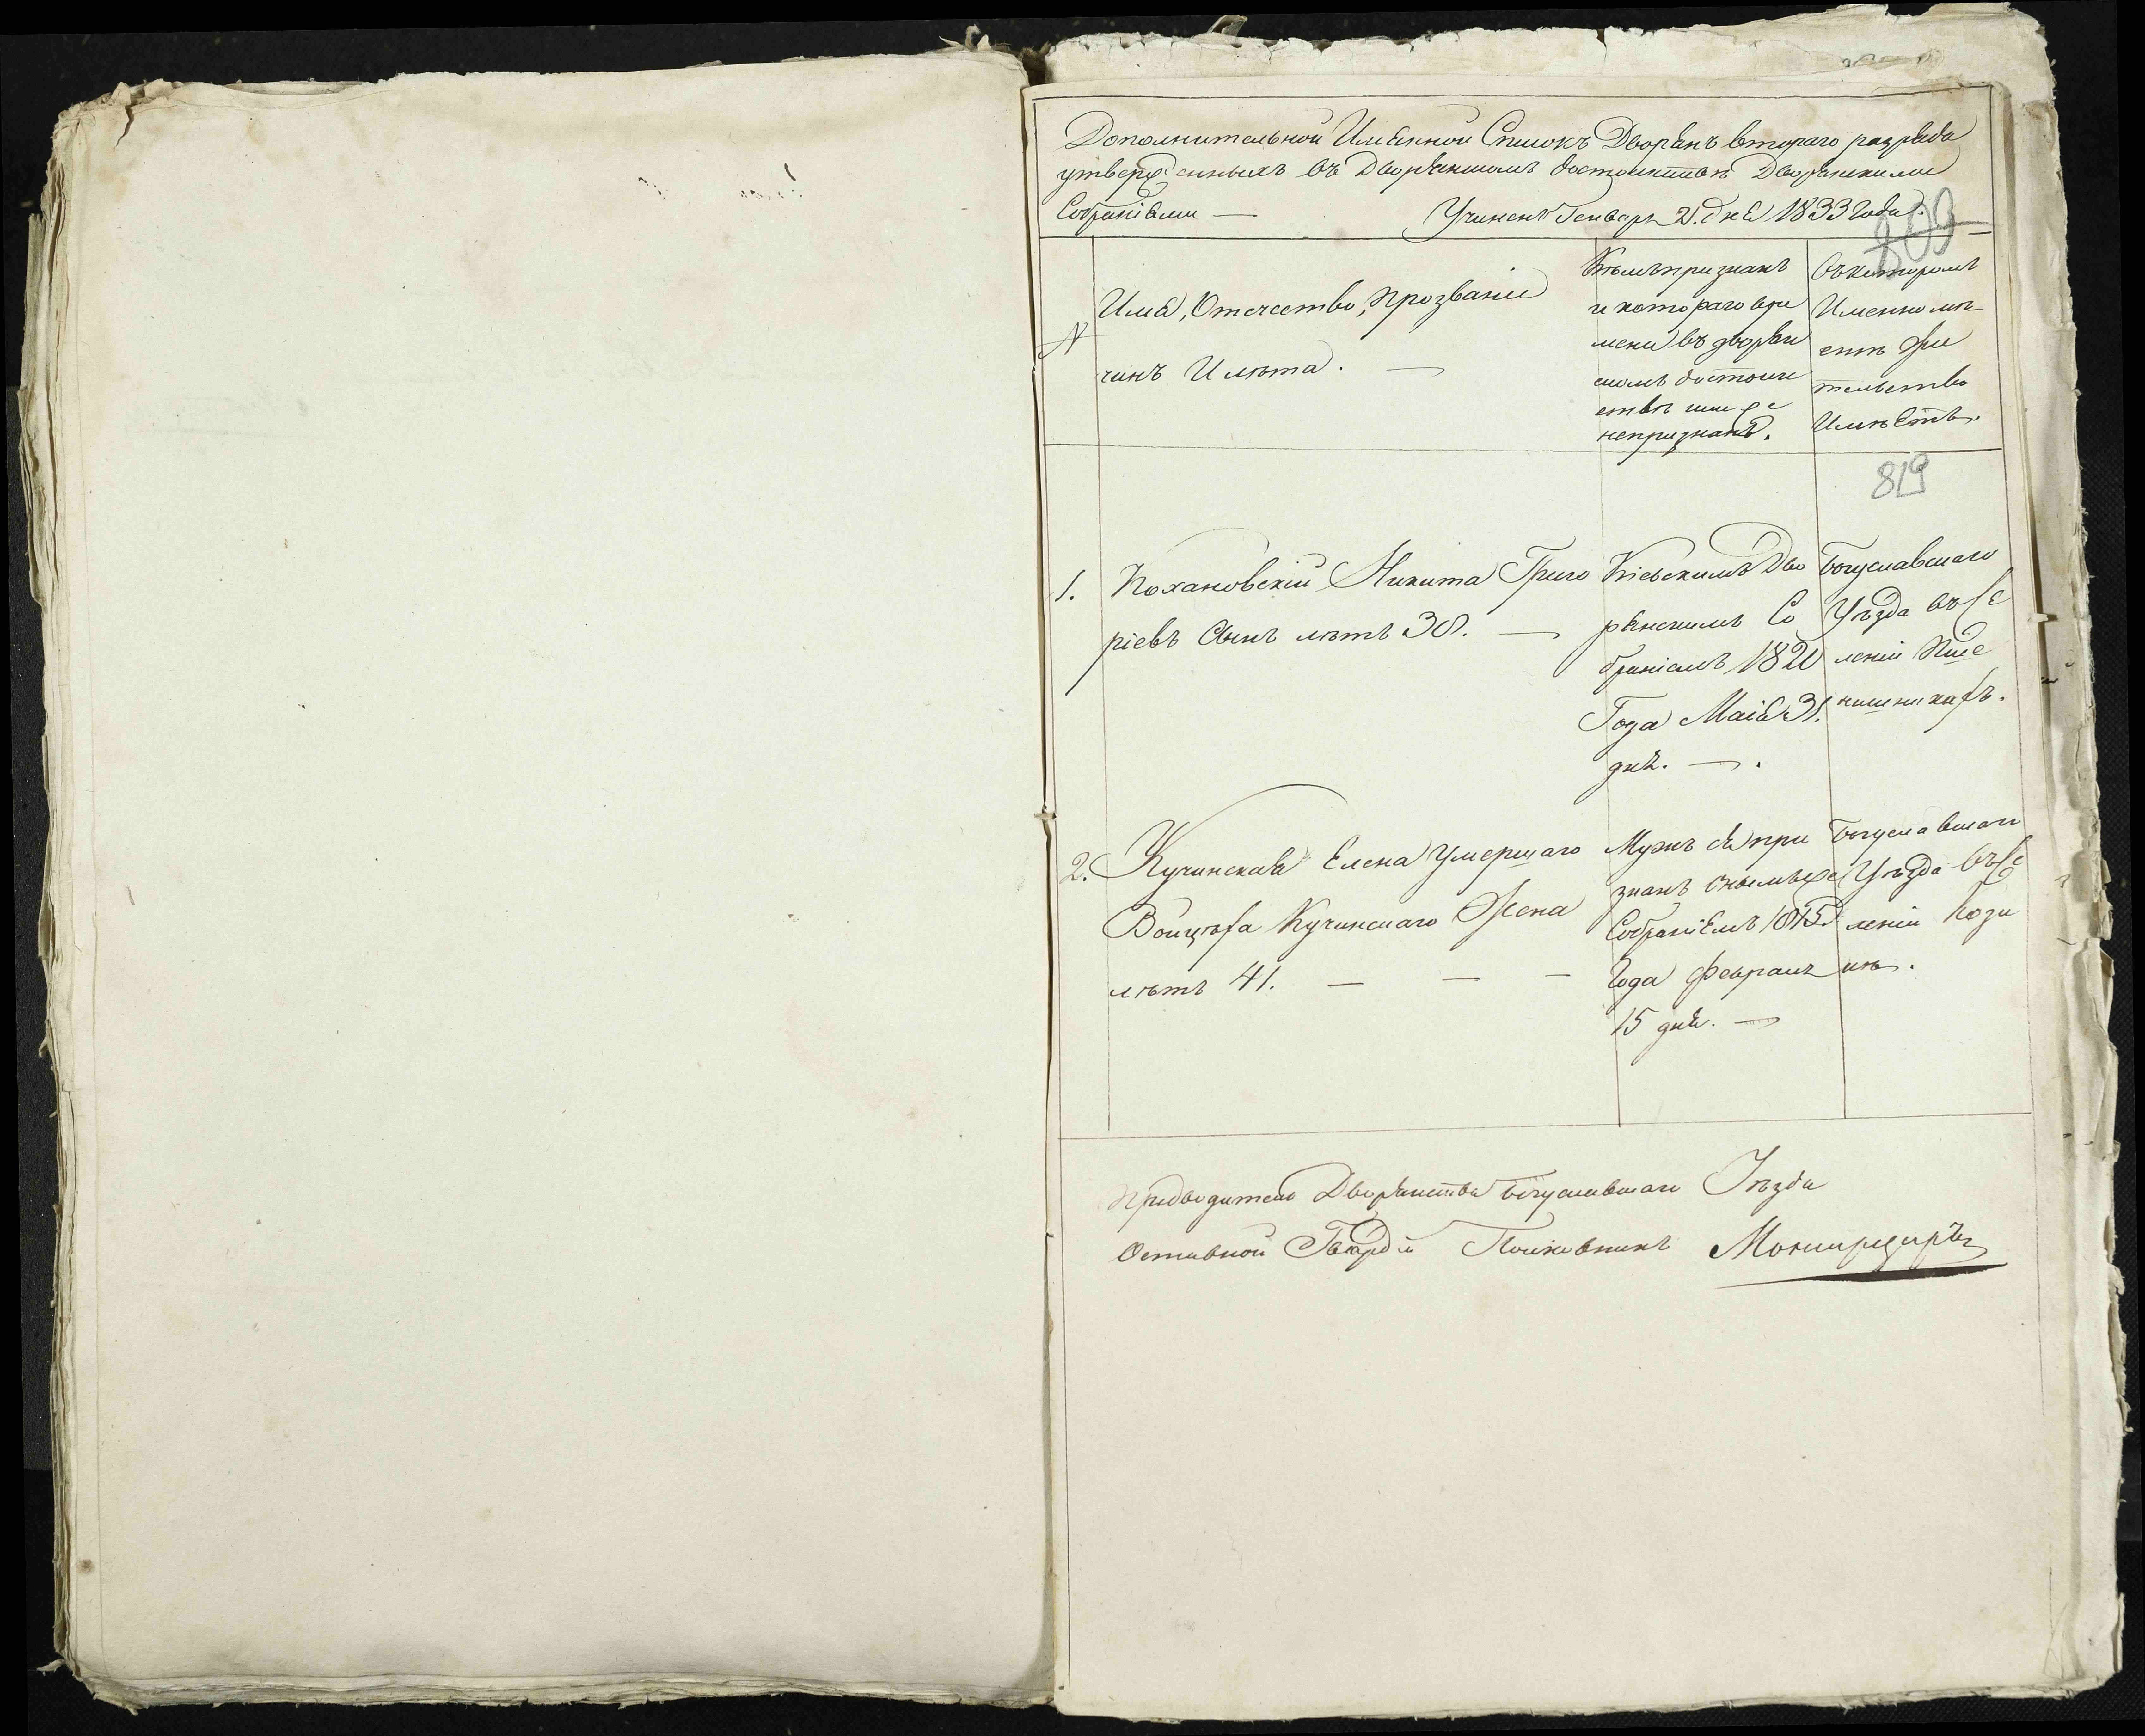 Дополнительной Именной Списокъ Дворянъ втораго разряда
утвержденныхъ въ Дворянскомъ достоинствѣ Дворянскими
Собраніями — Учиненъ Генваря 21. дня 1833 года.
809
N
Имя, Отечество, Прозваніе
чинъ И лѣта. —
Кѣмъ признанъ
и котораго вре
мени въ дворян
скомъ достоин
ствѣ или же
непризнанъ.
Въ которомъ
Именно мѣ
стѣ жи
тельство
Имѣетъ.
819
1. Кохановскій Никита Григо
ріевъ Сынъ лѣтъ 38. —
Кіевскимъ Дво
рянскимъ Со
браніемъ 1820
Года Маія 31.
дня. —.
Богуславскаго
Уѣзда въ се
леніи Пше
ничникахъ.
2. Кучинская Елена умершаго
Войцѣха Кучинскаго Жена
лѣтъ 41. — — —
Мужъ ея при
знанъ онымъ же
Собраніемъ 1815
Года Февраля
15 дня. —
Богуславскаго
Уѣзда въ се
леніи Кози
нѣ.
Предводитель Дворянства Богуславскаго Уѣзда
Отставной Гвардіи Полковникъ